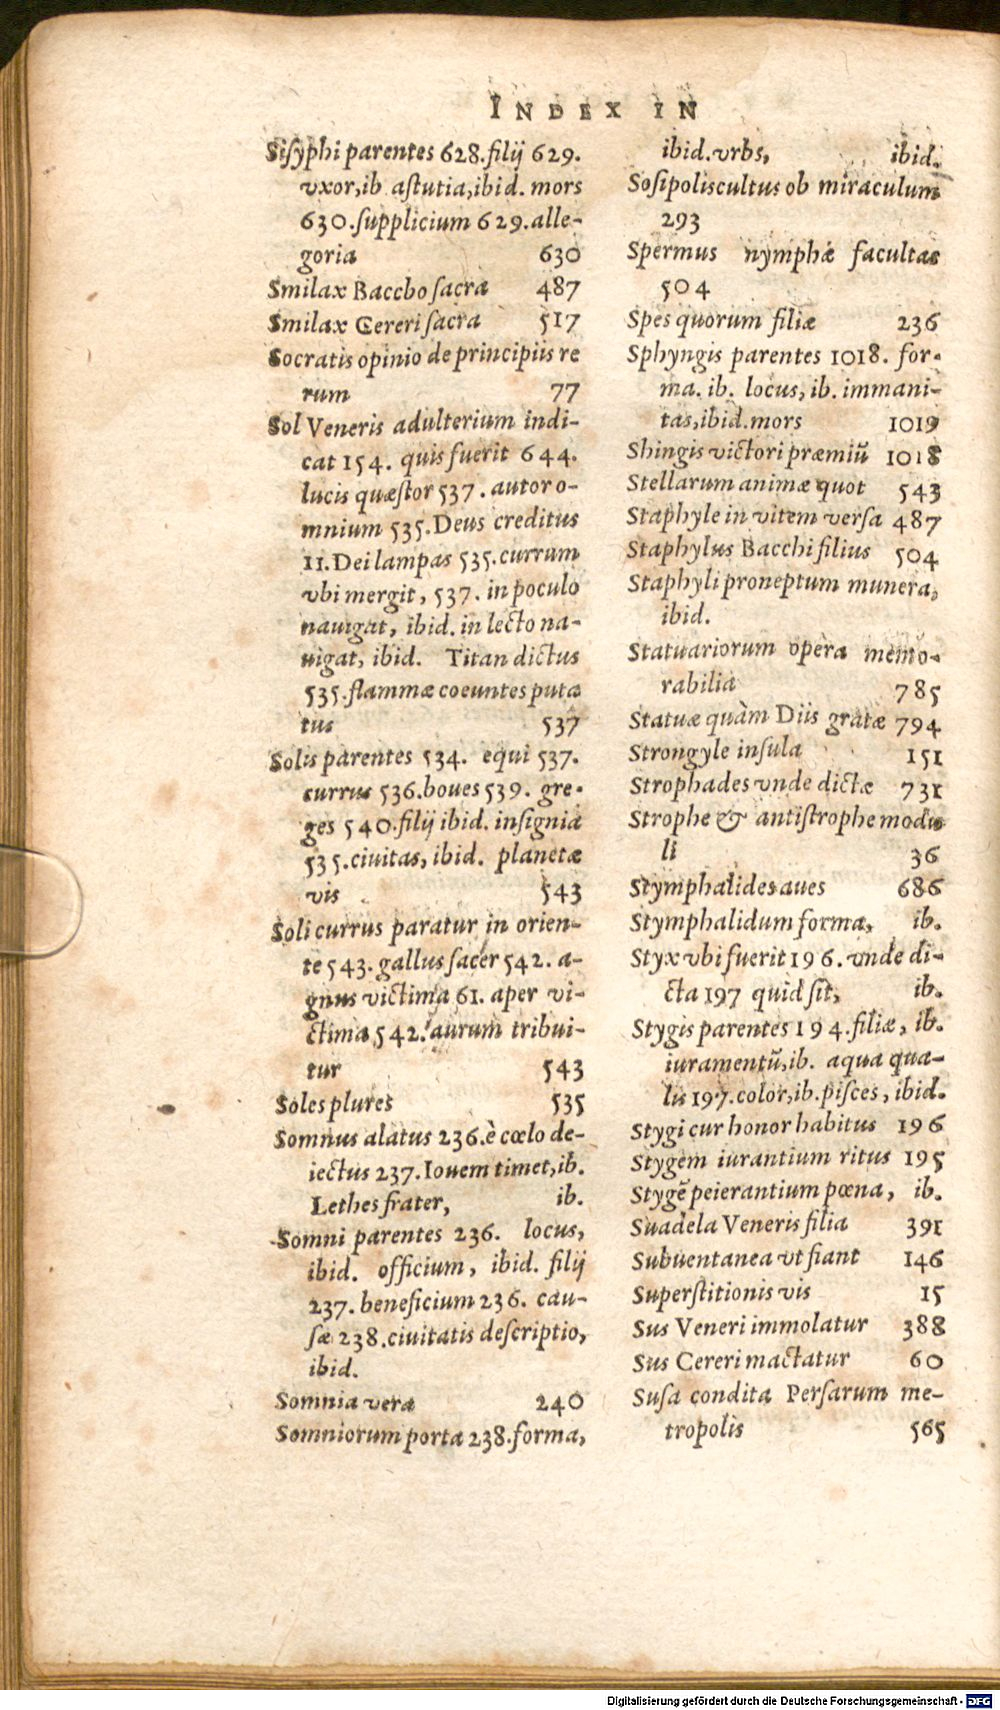 INDEX IN
Siſyphi parentes 628. filij 629.
vxor, ib aſtutia, ibid. mors
630. ſupplicium 629. alle-
goria 630
Smilax Baccho ſacra 487
Smilax Cereri ſacra 517
Socratis opinio de principiis re
rum 77
Sol Veneris adulterium indi-
cat 154. quis fuerit 644.
lucis quæſtor 537. autor o-
mnium 535. Deus creditus
11. Dei lampas 535. currum
vbi mergit, 537. in poculo
nauigat, ibid. in lecto na-
uigat, ibid. Titan dictus
535. flammæ coeuntes puta
tus 537
Solis parentes 534. equi 537.
currus 536. boues 539. gre-
ges 540. filij ibid. inſignia
535. ciuitas, ibid. planetæ
vis 543
Soli currus paratur in orien-
te 543. gallus ſacer 542. a-
gnus victima 61. aper vi-
ctima 542. aurum tribui-
tur 543
Soles plures 535
Somnus alatus 236. è cœlo de-
iectus 237. Iouem timet, ib.
Lethes frater, ib.
Somni parentes 236. locus,
ibid. officium, ibid. filij
237. beneficium 236. cau-
ſæ 238. ciuitatis deſcriptio,
ibid.
Somnia vera 240
Somniorum porta 238. forma,
ibid. vrbs, ibid.
Soſipolis cultus ob miraculum
293
Spermus nymphæ facultas
504
Spes quorum filiæ 236
Sphyngis parentes 1018. for-
ma. ib. locus, ib. immani-
tas, ibid. mors 1019
Shingis victori præmiũ 1018
Stellarum animæ quot 543
Staphyle in vitem verſa 487
Staphylus Bacchi filius 504
Staphyli proneptum munera,
ibid.
Statuariorum opera memo-
rabilia 785
Statuæ quàm Diis gratæ 794
Strongyle inſula 151
Strophades vnde dictæ 731
Strophe & antiſtrophe modu
li 36
Stymphalides aues 686
Stymphalidum forma, ib.
Styx vbi fuerit 196. vnde di-
cta 197 quid ſit, ib.
Stygis parentes 194. filiæ, ib.
iuramentũ, ib. aqua qua-
lis 197. color, ib. piſces, ibid.
Stygi cur honor habitus 196
Stygem iurantium ritus 195
Stygẽ peierantium pœna, ib.
Suadela Veneris filia 391
Subuentanea vt fiant 146
Superſtitionis vis 15
Sus Veneri immolatur 388
Sus Cereri mactatur 60
Suſa condita Perſarum me-
tropolis 565
Digitalisierung gefördert durch die Deutsche Forschungsgemeinschaft - DFG